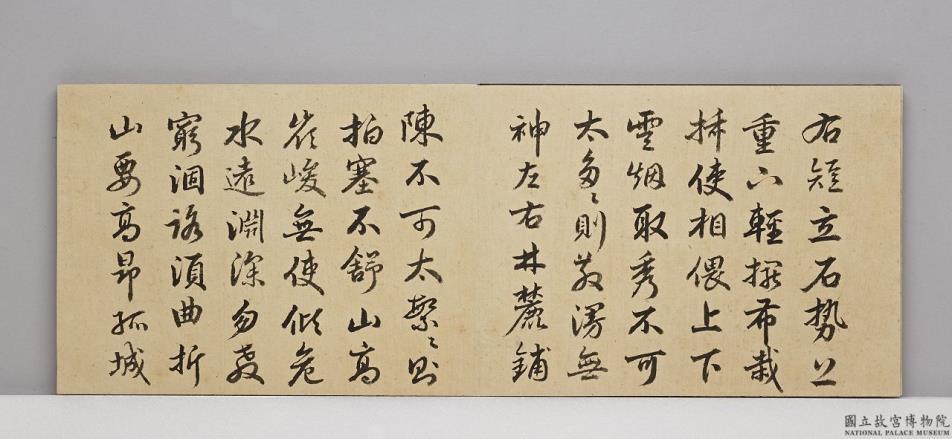 右短立石勢上
重下輕擺布栽
插使相偎上下
雲烟取秀不可
太多々則散漫無
神左右林麓鋪
陳不可太繁々則
拍塞不舒山高
峻無使傾危
水遠淵深勿教
窮涸路須曲折
山要高昂孤城
國立故宮博物院
NATIONAL PALACE MUSEUM